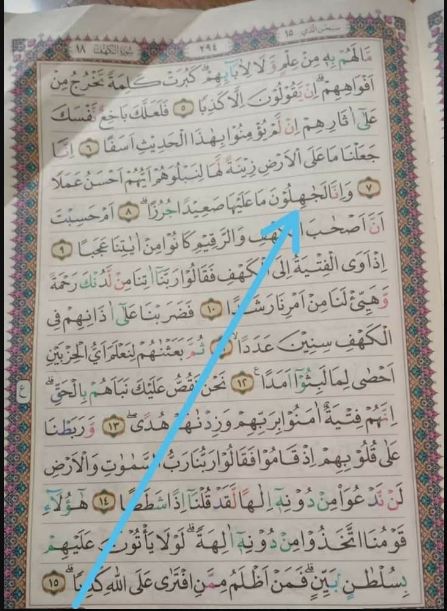 سُبْحٰنَ الَّذِيْ ١٥ ٢٩٤ سُوْرَةُ الْكَهْفِ ١٨
مَا لَهُمْ بِهٖ مِنْ عِلْمٍ وَّلَا لِاٰبَاۤىِٕهِمْۗ كَبُرَتْ كَلِمَةً تَخْرُجُ مِنْ
اَفْوَاهِهِمْۗ اِنْ يَّقُوْلُوْنَ اِلَّا كَذِبًا ٥ فَلَعَلَّكَ بَاخِعٌ نَّفْسَكَ
عَلٰٓى اٰثَارِهِمْ اِنْ لَّمْ يُؤْمِنُوْا بِهٰذَا الْحَدِيْثِ اَسَفًا ٦ اِنَّا
جَعَلْنَا مَا عَلَى الْاَرْضِ زِيْنَةً لَّهَا لِنَبْلُوَهُمْ اَيُّهُمْ اَحْسَنُ عَمَلًا
٧ وَاِنَّا لَجٰهِلُوْنَ مَا عَلَيْهَا صَعِيْدًا جُرُزًاۗ ٨ اَمْ حَسِبْتَ
اَنَّ اَصْحٰبَ الْكَهْفِ وَالرَّقِيْمِ كَانُوْا مِنْ اٰيٰتِنَا عَجَبًا ٩
اِذْ اَوَى الْفِتْيَةُ اِلَى الْكَهْفِ فَقَالُوْا رَبَّنَآ اٰتِنَا مِنْ لَّدُنْكَ رَحْمَةً
وَّهَيِّئْ لَنَا مِنْ اَمْرِنَا رَشَدًا ١٠ فَضَرَبْنَا عَلٰٓى اٰذَانِهِمْ فِى
الْكَهْفِ سِنِيْنَ عَدَدًاۙ ثُمَّ بَعَثْنٰهُمْ لِنَعْلَمَ اَيُّ الْحِزْبَيْنِ
اَحْصٰى لِمَا لَبِثُوْٓا اَمَدًاࣖ ١٢ نَحْنُ نَقُصُّ عَلَيْكَ نَبَاَهُمْ بِالْحَقِّۗ
اِنَّهُمْ فِتْيَةٌ اٰمَنُوْا بِرَبِّهِمْ وَزِدْنٰهُمْ هُدًىۖ ١٣ وَّرَبَطْنَا
عَلٰى قُلُوْبِهِمْ اِذْ قَامُوْا فَقَالُوْا رَبُّنَا رَبُّ السَّمٰوٰتِ وَالْاَرْضِ
لَنْ نَّدْعُوَا۟ مِنْ دُوْنِهٖٓ اِلٰهًا لَّقَدْ قُلْنَآ اِذًا شَطَطًا ١٤ هٰٓؤُلَاۤءِ
قَوْمُنَا اتَّخَذُوْا مِنْ دُوْنِهٖٓ اٰلِهَةًۗ لَوْلَا يَأْتُوْنَ عَلَيْهِمْ
بِسُلْطٰنٍۢ بَيِّنٍۗ فَمَنْ اَظْلَمُ مِمَّنِ افْتَرٰى عَلَى اللّٰهِ كَذِبًاۗ ١٥